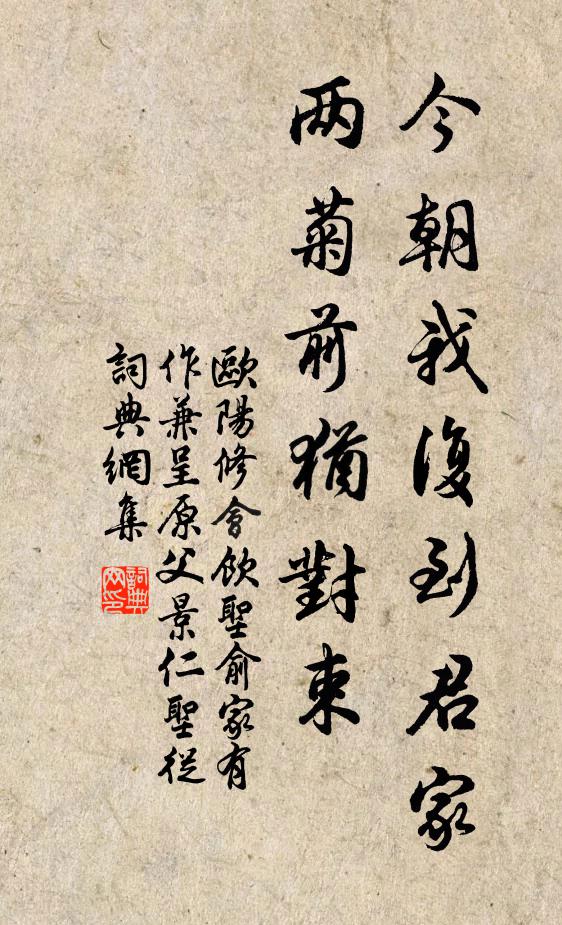 今朝我復到君家
两菊前猶對束
歐陽修會飲聖俞家有
作兼呈原父景仁聖從
詞典網集
詞典
网印